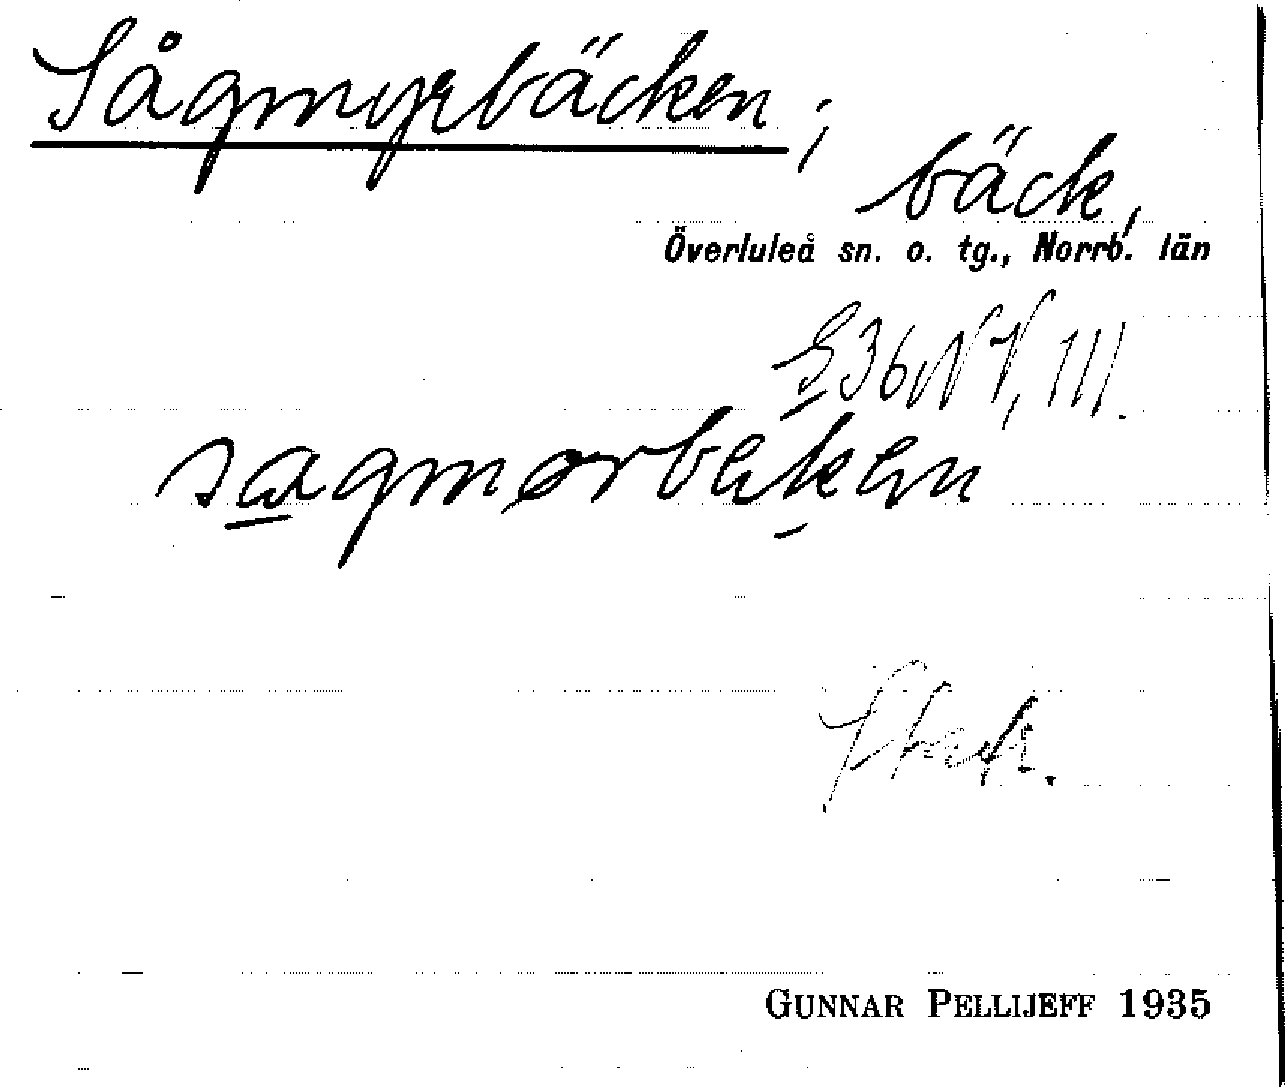 Sågmyrbäcken;
bäck,
Överluleå sn. o. tg., Norrb. län
S36NV, III.
sagmørbäken
GUNNAR PELLIJEFF 1935